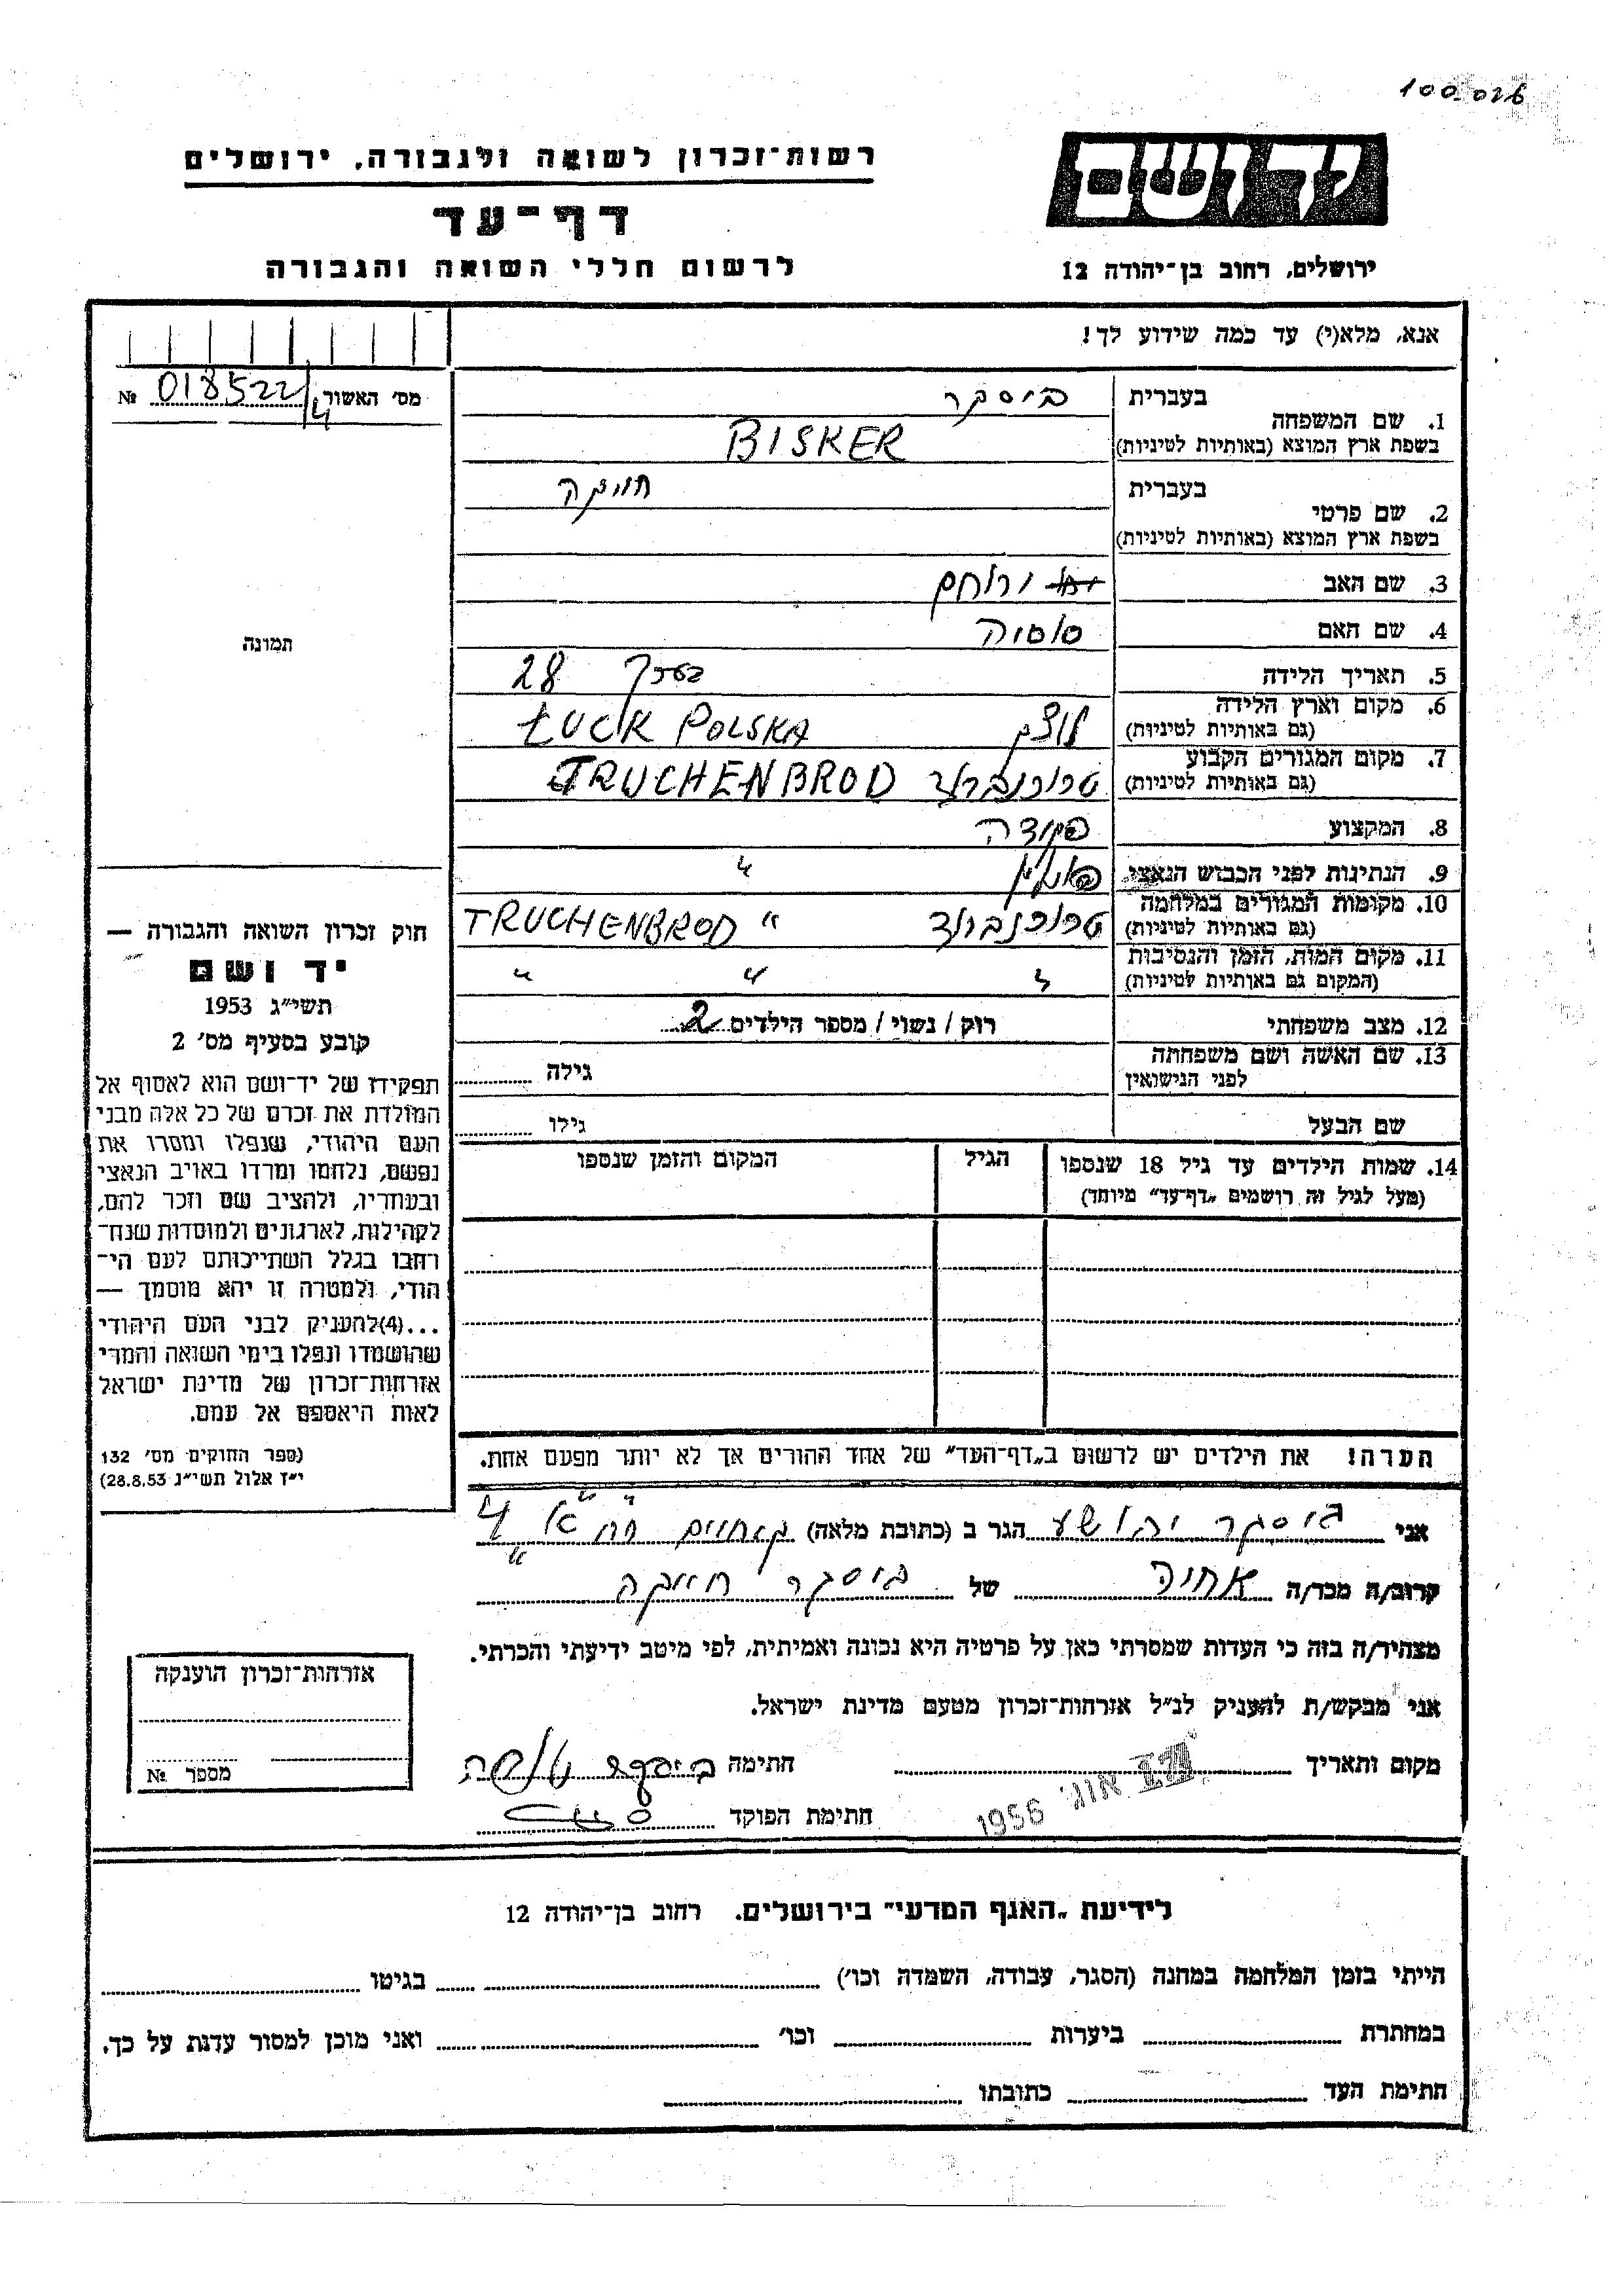 100-026
יד ושם
רשות־זכרון לשואה ולגבורה, ירושלים
דף־עד
לרשום חללי השואה והגבורה
ירושלים, רחוב בן־יהודה 12
אנא, מלא(י) עד כמה שידוע לך!
מס׳ האשור 018522/4 №
בעברית ביסקר
1. שם המשפחה
בשפת ארץ המוצא (באותיות לטיניות) BISKER
בעברית חייקה
2. שם פרטי
בשפת ארץ המוצא (באותיות לטיניות)
3. שם האב ירוחם
4. שם האם סוסיה
5. תאריך הלידה בערך 28
6. מקום וארץ הלידה
(גם באותיות לטיניות) לוצק ŁUCK POLSKA
7. מקום המגורים הקבוע
(גם באותיות לטיניות) טרוכנברוד TRUCHENBROD
8. המקצוע פקידה
9. הנתינות לפני הכבוש הנאצי פולין "
10. מקומות המגורים במלחמה
(גם באותיות לטיניות) טרוכנברוד " TRUCHENBROD
11. מקום המות, הזמן והנסיבות
(המקום גם באותיות לטיניות) " " "
12. מצב משפחתי רוק / נשוי / מספר הילדים 2
13. שם האשה ושם משפחתה
לפני הנישואין גילה
שם הבעל גילו
14. שמות הילדים עד גיל 18 שנספו הגיל המקום והזמן שנספו
(מעל לגיל זה רושמים „דף־עד״ מיוחד)
הערה! את הילדים יש לרשום ב„דף־העד״ של אחד ההורים אך לא יותר מפעם אחת.
תמונה
חוק זכרון השואה והגבורה —
יד ושם
תשי״ג 1953
קובע בסעיף מס׳ 2
תפקידו של יד־ושם הוא לאסוף אל
המולדת את זכרם של כל אלה מבני
העם היהודי, שנפלו ומסרו את
נפשם, נלחמו ומרדו באויב הנאצי
ובעוזריו, ולהציב שם וזכר להם,
לקהילות, לארגונים ולמוסדות שנח־
רבו בגלל השתייכותם לעם הי־
הודי, ולמטרה זו יהא מוסמך —
...(4)להעניק לבני העם היהודי
שהושמדו ונפלו בימי השואה והמרי
אזרחות־זכרון של מדינת ישראל
לאות היאספם אל עמם.
(ספר החוקים מס׳ 132
י״ז אלול תשי״ג 28.8.53)
אני ביסקר יהושע הגר ב (כתובת מלאה) 4
קרוב/ה מכר/ה אחיה של ביסקר חייקה
מצהיר/ה בזה כי העדות שמסרתי כאן על פרטיה היא נכונה ואמיתית, לפי מיטב ידיעתי והכרתי.
אני מבקש/ת להעניק לנ״ל אזרחות־זכרון מטעם מדינת ישראל.
מקום ותאריך אוג׳ 1956 חתימה ביסקר
חתימת הפוקד
אזרחות־זכרון הוענקה
מספר №
לידיעת „האגף המדעי״ בירושלים. רחוב בן־יהודה 12
הייתי בזמן המלחמה במחנה (הסגר, עבודה, השמדה וכו׳) בגיטו
במחתרת ביערות וכו׳ ואני מוכן למסור עדות על כך.
חתימת העד כתובתו